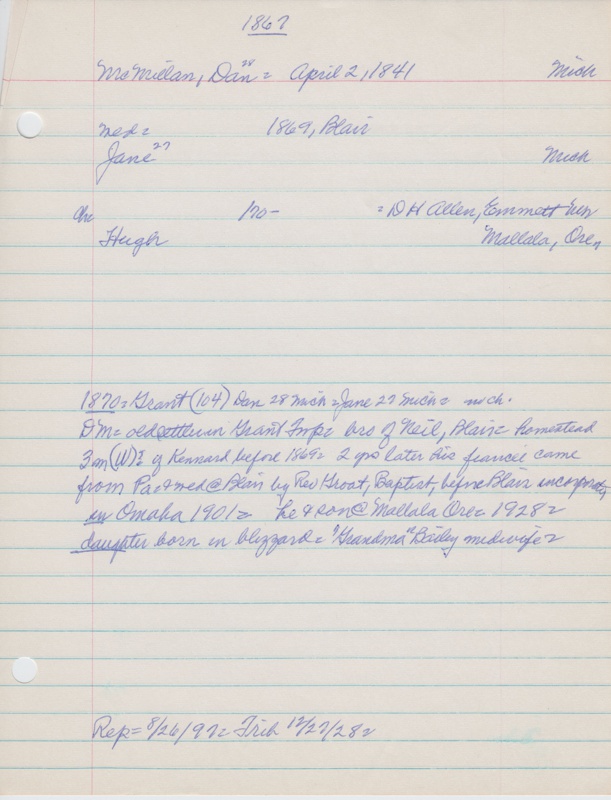 1867
McMillan, Dan²⁸ = April 2, 1841 Mich
med = 1869, Blair
Jane²⁷ Mich
Ch: 170- = D H Allen, Emmett
Hugh Mallala, Ore,
1870 = Grant (104) Dan 28 Mich = Jane 27 Mich =
DM = old settler in Grant Twp = bro of Neil, Blair = homestead
3 m (W) of Kennard before 1869 = 2 yrs later his fiancee came
from Pa & med @ Blair by Rev Groat, Baptist, before Blair incorporated,
in Omaha 1901 = he & son @ Mallala Ore = 1928 =
daughter born in blizzard = "Grandma" Bailey midwife =
Rep = 8/26/97 = Trib 12/27/28 =